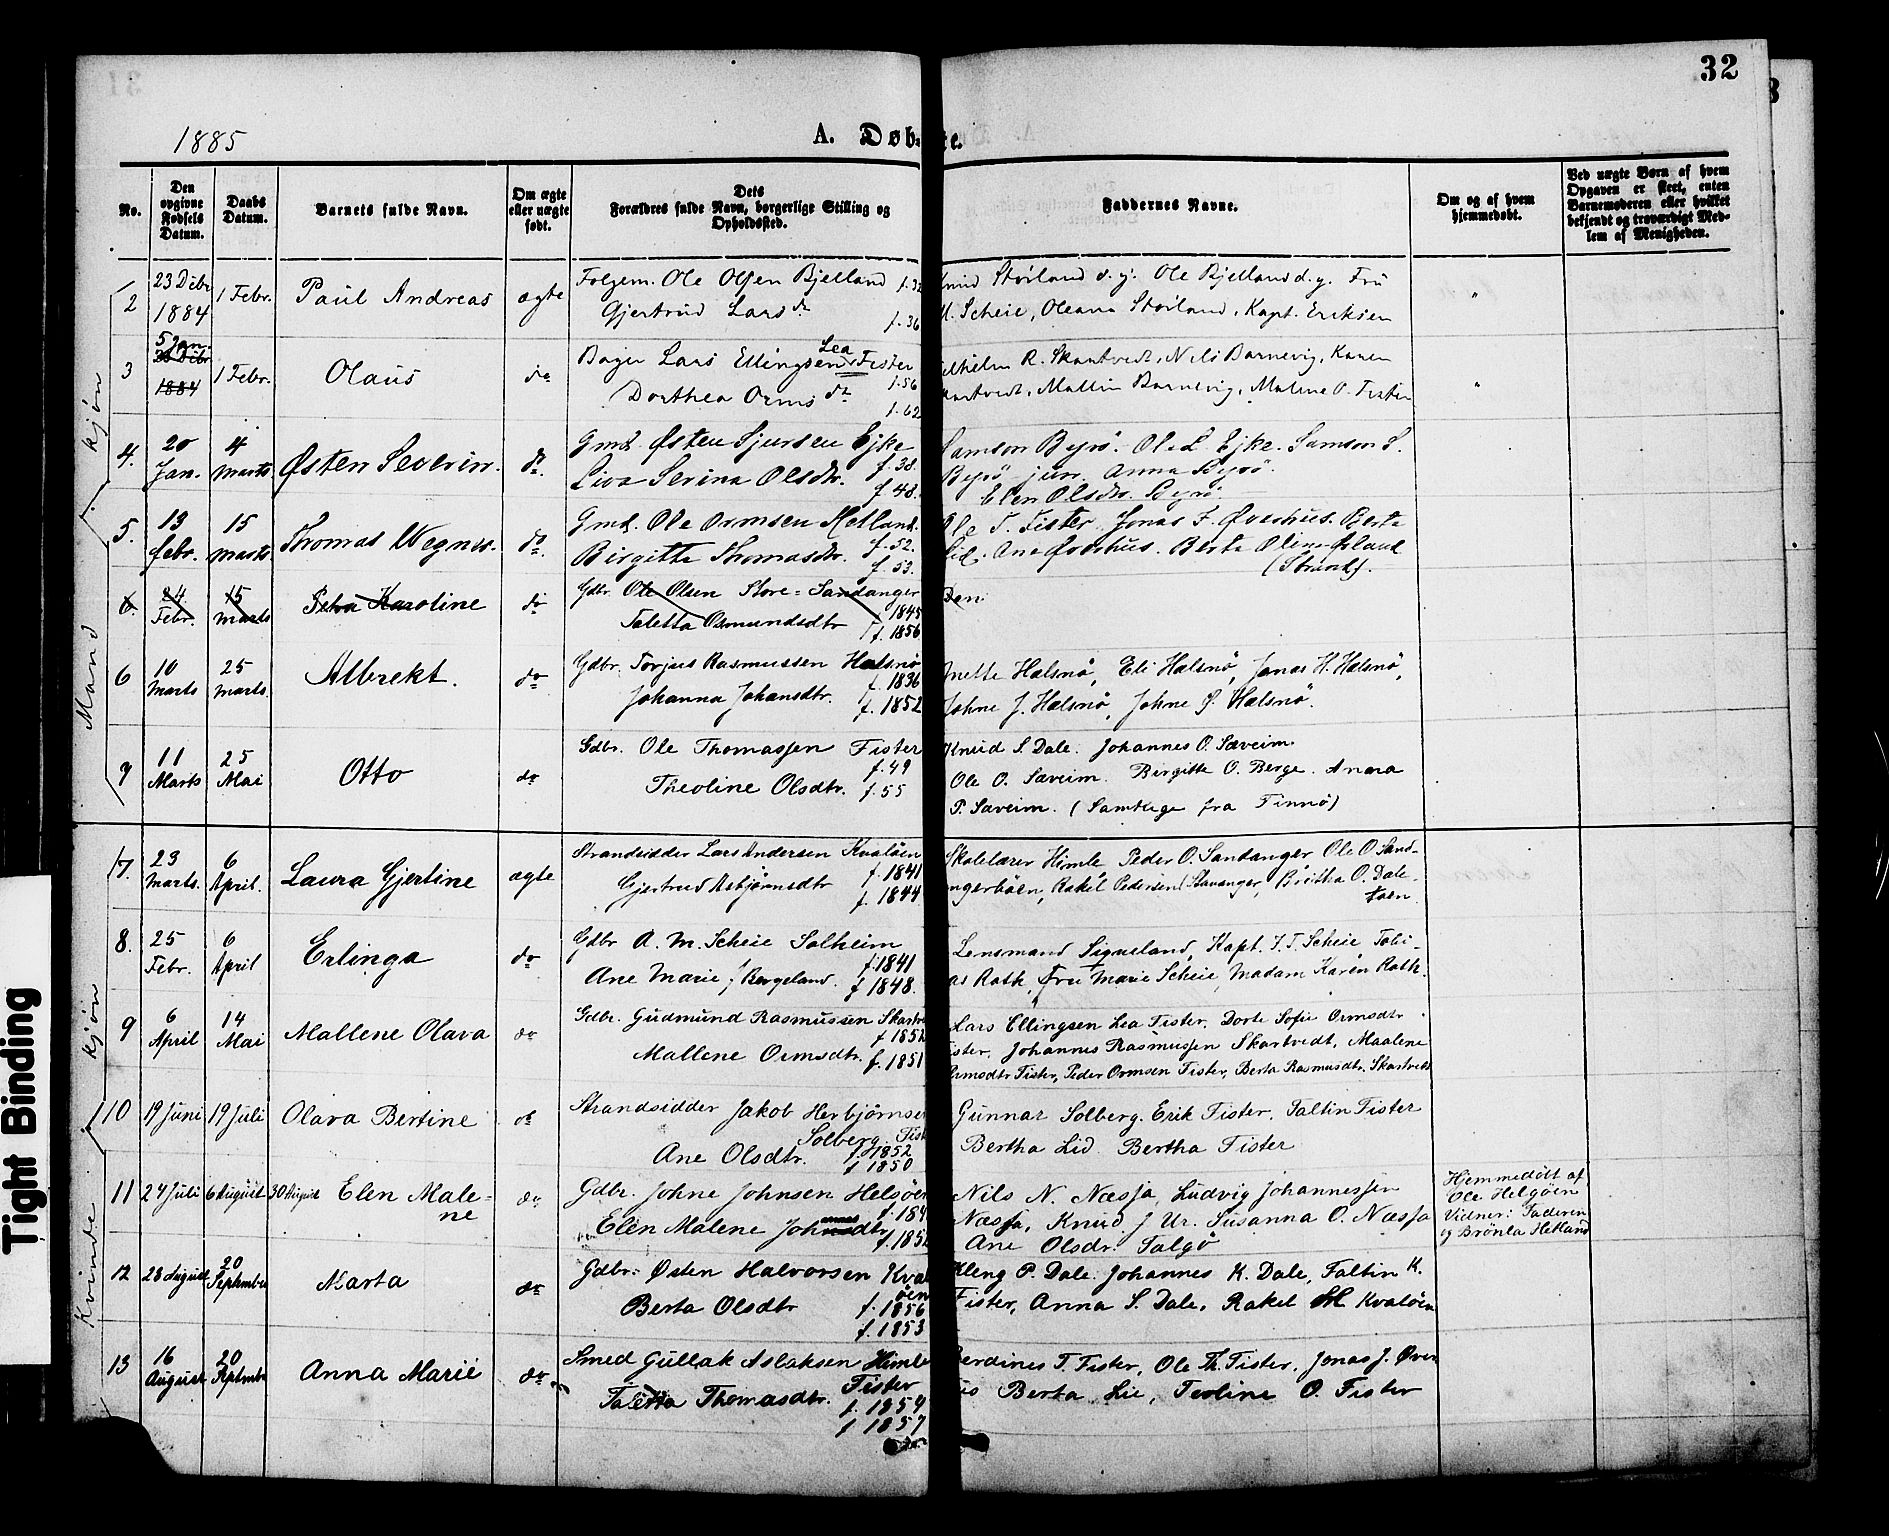 32
1885
A. Døbte.
No.
Den opgivne Fødsels Datum.
Daabs Datum.
Barnets fulde Navn.
Om ægte eller uægte født.
Dets Forældres fulde Navn, borgerlige Stilling og Opholdssted.
Faddernes Navne.
Om og af hvem hjemmedøbt.
Ved uægte Børn af hvem Opgaven er skeet, enten Barnemoderen eller hvilket bekjendt og troværdigt Medlem af Menigheden.
Mand kjøn
2 23 Debr 1884 1 Febr. Paul Andreas ægte
Folgem. Ole Olsen Bjelland f. 32
Gjertrud Larsdr f. 36
Knud Störland d. y. Ole Bjelland d. y. Fru
M. Scheie, Oleana Störland, Kapt. Eriksen
3 5 Jan. 1884 1 Febr. Olaus do
Lars Ellingsen Lea Fister f. 56
Dorthea Ormsdr f. 62
Vilhelm R. Skartvedt, Nils Barnevig, Karen
Skartvedt, Mallin Barnevig, Malene O. Fister
4. 20 Jan. 4 Marts Østen Severin. do.
Gmd. Østen Sjursen Ejke f. 38.
Liva Serina Olsdtr. f. 48.
Samson Byrö. Ole L. Ejke. Samson S.
Byrö junr. Anna Byrö.
Elen Olsdtr. Byrö.
5. 13 febr. 15 marts Thomas Wegner. do.
Gmd. Ole Ormsen Hetland. f. 52.
Birgitte Thomasdtr. f. 53.
Ole T. Fister. Jonas J. Øverhus. Berte
Lid. Ane Øverhus. Berte Oline Øsland
(Strand).
6. 24 Febr. 15 Marts Petra Karoline do
Gdbr. Ole Olsen Store-Sandanger f. 1845
Taletta Osmundsdtr f. 1856
6 10 Marts 25 Marts. Albrekt. do
Gdbr. Torjus Rasmussen Halsnö f. 1836
Johanna Johansdtr. f. 1852
Anette Halsnö, Eli Halsnö, Jonas H. Halsnö,
Johne J. Halsnö, Johne P. Halsnö.
7 11 Marts 25 Mai Otto do
Gdbr. Ole Thomassen Fister f. 49
Theoline Olsdtr. f. 55
Knud S. Dale. Johannes O. Sæveim.
Ole O. Sæveim. Birgitte O. Berge. Anna
P. Sæveim. (Samtlige fra Finnö)
Kvinde kjøn
7. 23 Marts. 6 April. Laura Gjertine ægte
Strandsidder Lars Andersen Kvalöen f. 1841
Gjertrud Asbjørnsdtr f. 1844
Skolelærer Himle Peder O. Sandanger Ole O. Sand-
angerböen, Rakel Pedersen (Stavanger, Britha O. Dale-
töen
8. 25 Febr. 6 April Erlinga do
Gdbr A. M. Scheie Solheim f. 1841
Ane Marie f. Bergeland. f. 1848.
Lensmand Sigveland, Kapt. J. T. Scheie Tobi-
as Rath, Fru Marie Scheie, Madam Karen Rath.
9 6 April 14 Mai Mallene Olava do
Gdbr. Gudmund Rasmussen Skartve f. 1852
Mallene Ormsdtr. f. 1851
Lars Ellingsen Lea Fister. Dorte Sofie Ormsdtr
Fister, Johannes Rasmussen Skartvedt, Maalene
Ormsdtr Fister, Peder Ormsen Fister, Berta Rasmusdtr. Skartvedt
10 19 Juni 19 Juli Olava Bertine do
Strandsidder Jakob Herbjörnsen
Solberg. Fist f. 1852
Ane Olsdtr. f. 1850
Gunnar Solberg. Erik Fister. Faltin Fister
Bertha Lid Bertha Fister
11 24 Juli 6 August 30 August Elen Male-
ne do
Gdbr. Johne Johnsen Helgöen f. 184
Elen Malene Johannesdtr f. 185
Nils N. Næsja, Ludvig Johannessen
Næsja, Knud J Ur. Susanna O. Næsja
Ane Olsdr. Talgö
Hjemmedöbt af
Ole Helgöen
Vidner: Faderen
og Brönla Hetland
12 28 August 20 September Marta do
Gdbr. Østen Halvorsen Kval
öen f. 1856
Berta Olsdtr f. 1853
Kleng P. Dale. Johannes K. Dale, Faltin K.
Fister, Anna S. Dale, Rakel M Kvalöen
13 16 August 20 Septmber Anna Marie do
Smed Gullak Aslaksen Himle
Fister f. 1854
Taletta Thomasdtr. f. 1857
Berdines T. Fister, Ole Th. Fister, Jonas J. Øver
Berta Lie, Teoline O. Fister
Tight Binding